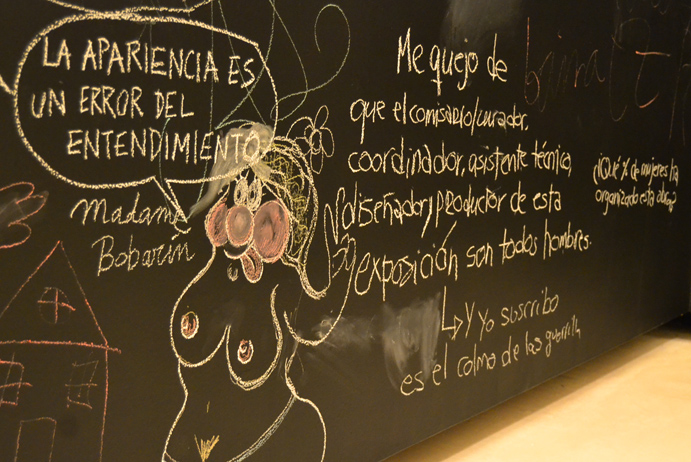 LA APARIENCIA ES
UN ERROR DEL
ENTENDIMIENTO
Madame
Bobarín
Me quejo de
que el comisario/curador,
coordinador, asistente técnico,
diseñador y productor de esta
exposición son todos hombres.
↳ y yo suscribo
es el colmo de las guerrilla
¿Qué % de mujeres ha
organizado esta